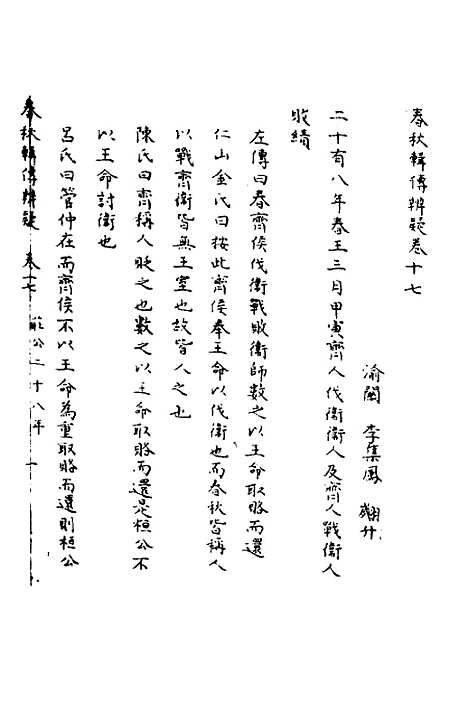 春秋輯傳辨疑卷十七
渝關 李集鳳 翽升
二十有八年春王三月甲寅齊人伐衞衞人及齊人戰衞人
敗績
左傳曰春齊侯伐衞戰敗衞師數之以王命取賂而還
仁山金氏曰按此齊侯奉王命以伐衞也而春秋皆稱人
以戰齊衞皆無王室也故皆人之也
陳氏曰齊稱人貶之也數之以王命取賂而還是桓公不
以王命討衞也
呂氏曰管仲在而齊侯不以王命為重取賂而還則桓公
春秋輯傳辨疑 卷十七 莊公二十八年 一